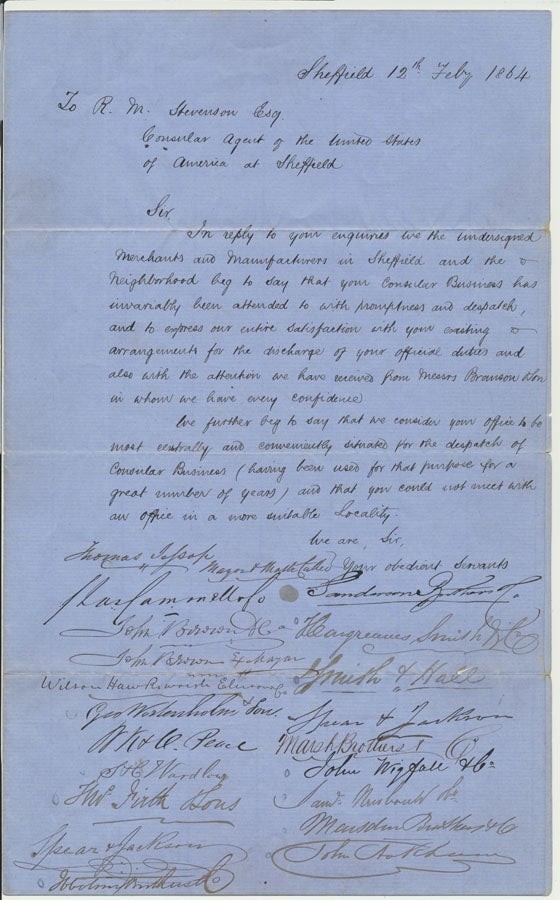 Sheffield 12th Feby 1864
To R. M. Stevenson Esq.
Consular Agent of the United States
of America at Sheffield
Sir,
In reply to your enquiries we the undersigned
Merchants and Manufacturers in Sheffield and the
Neighborhood beg to say that your Consular Business has
invariably been attended to with promptness and despatch,
and to express our entire satisfaction with your existing
arrangements for the discharge of your official duties and
also with the attention we have received from Messrs Branson & Son
in whom we have every confidence
We further beg to say that we consider your office to be
most centrally and conveniently situated for the despatch of
Consular Business (having been used for that purpose for a
great number of years) and that you could not meet with
an office in a more suitable Locality.
We are, Sir,
Your obedient servants
Thomas Jessop
Sanderson Brothers & Co.
John Brown & Co
Hargreaves Smith & Co
John Brown Mayor
Smith & Hall
Wilson Hawksworth Ellison & Co
Geo Wostenholm & Son.
Spear & Jackson
W K & C. Peace
Marsh Brothers & Co
John Wigfall & Co
Thos Firth & Sons
Saml. Newbould & Co
Marsden Brothers & Co
Spear & Jackson
John